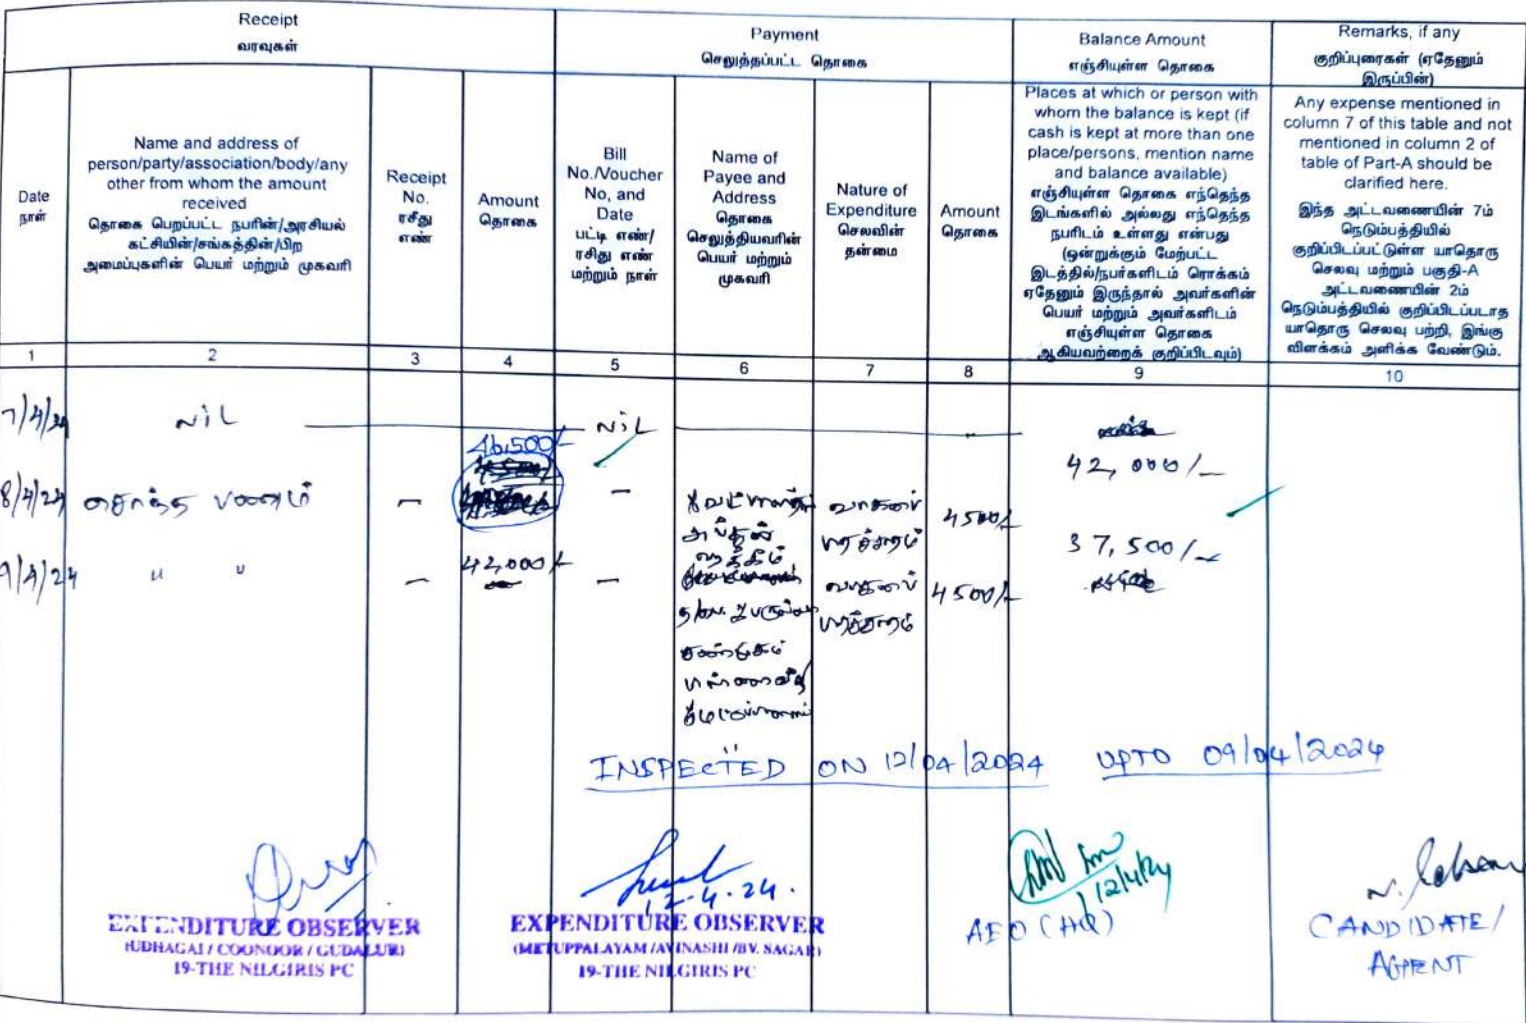 Receipt
வரவுகள்
Payment
செலுத்தப்பட்ட தொகை
Balance Amount
எஞ்சியுள்ள தொகை
Remarks, if any
குறிப்புரைகள் (ஏதேனும்
இருப்பின்)
Date
நாள்
Name and address of
person/party/association/body/any
other from whom the amount
received
தொகை பெறப்பட்ட நபரின்/அரசியல்
கட்சியின்/சங்கத்தின்/பிற
அமைப்புகளின் பெயர் மற்றும் முகவரி
Receipt
No.
ரசீது
எண்
Amount
தொகை
Bill
No./Voucher
No, and
Date
பட்டி எண்/
ரசிது எண்
மற்றும் நாள்
Name of
Payee and
Address
தொகை
செலுத்தியவரின்
பெயர் மற்றும்
முகவரி
Nature of
Expenditure
செலவின்
தன்மை
Amount
தொகை
Places at which or person with
whom the balance is kept (if
cash is kept at more than one
place/persons, mention name
and balance available)
எஞ்சியுள்ள தொகை எந்தெந்த
இடங்களில் அல்லது எந்தெந்த
நபரிடம் உள்ளது என்பது
(ஒன்றுக்கும் மேற்பட்ட
இடத்தில்/நபர்களிடம் ரொக்கம்
ஏதேனும் இருந்தால் அவர்களின்
பெயர் மற்றும் அவர்களிடம்
எஞ்சியுள்ள தொகை
ஆகியவற்றைக் குறிப்பிடவும்)
Any expense mentioned in
column 7 of this table and not
mentioned in column 2 of
table of Part-A should be
clarified here.
இந்த அட்டவணையின் 7ம்
நெடும்பத்தியில்
குறிப்பிடப்பட்டுள்ள யாதொரு
செலவு மற்றும் பகுதி-A
அட்டவணையின் 2ம்
நெடும்பத்தியில் குறிப்பிடப்படாத
யாதொரு செலவு பற்றி, இங்கு
விளக்கம் அளிக்க வேண்டும்.
1 2 3 4 5 6 7 8 9 10
7/4/24 NIL NIL
46,500/-
42,000/-
8/4/24 சொந்த பணம் – – வாகனப் 4500/-
பிரச்சாரம்
37,500/-
9/4/24 " " – 42,000/- – வாகனப் 4500/-
பிரச்சாரம்
சண்முகம்
INSPECTED ON 12/04/2024 UPTO 09/04/2024
12-4-24.
12/4/24
EXPENDITURE OBSERVER
(UDHAGAI / COONOOR / GUDALUR)
19-THE NILGIRIS PC
EXPENDITURE OBSERVER
(METTUPPALAYAM /AVINASHI /BV. SAGAR)
19-THE NILGIRIS PC
AEO (HQ)
CANDIDATE/
AGENT